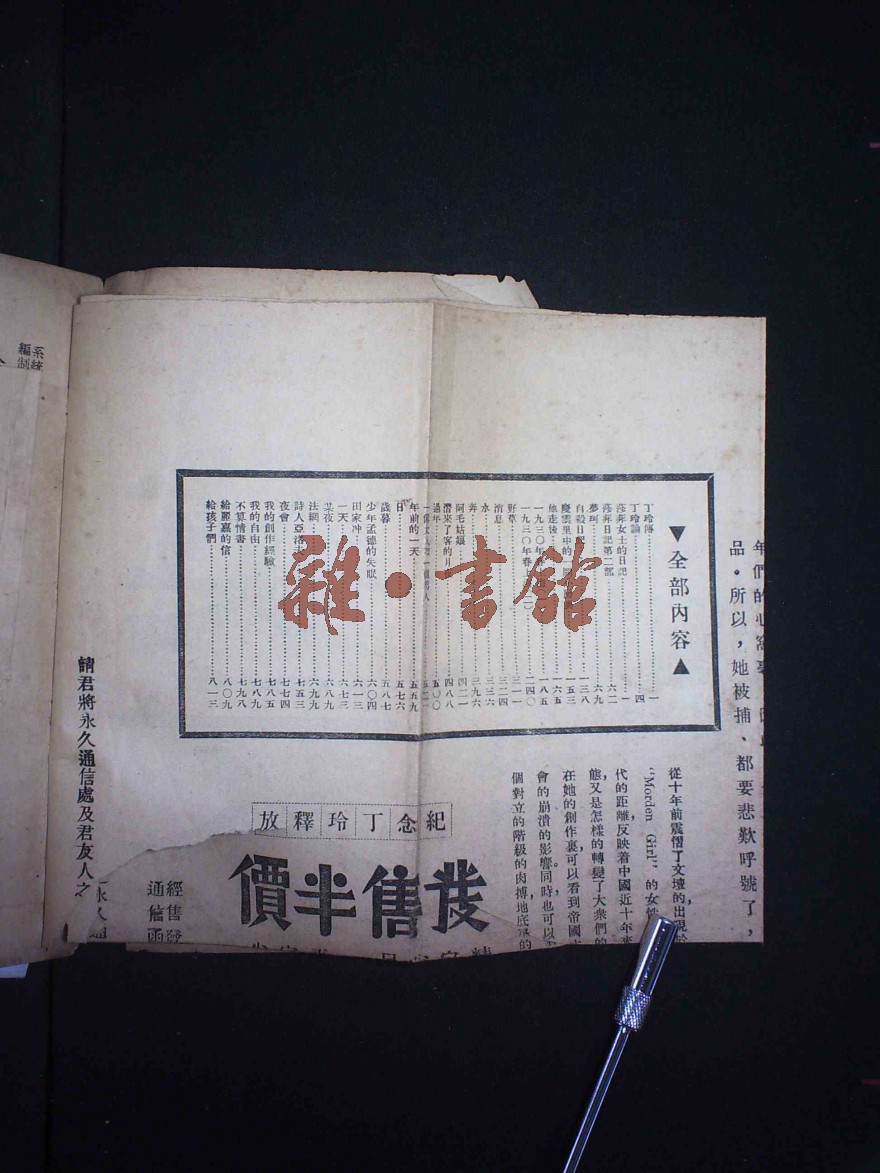 年們的心
品。所以，她被捕、都要悲歎呼號了，
▼全部內容▲
丁玲傳 一
丁玲論 四
莎菲女士的日記 一
莎菲日記第二部 六二
夢珂 六九
自殺日記 一三八
慶雲里中的一 一五三
他走後 一八五
一九三〇年春
一九三〇年春 二四〇
野草 三一一
消息 三二二
水 三三六
奔 三九六
阿毛姑娘 四二一
潛來了客的月 四八八
過年 五〇〇
五二一
年前的一天 五五九
日 五七六
歲暮 五八七
少年孟德的失眠 六〇四
田家冲 六一三
一天 六七三
某夜 六八九
法網 六九九
詩人亞洛夫 七五三
夜會 七七四
我的創作經驗 七八七
我的自由 七八九
不算情書 七九五
給麗嘉的信 八〇九
給孩子們 八一三
從十年前震慴了文壇的出現於
“Morden Girl” 的女性
代的距離，反映着中國近十年來
態，又是怎樣的轉變了大衆們的
在她的創作裏，可以看到帝國主
會的崩潰的影響。同時也可以
個對立的階級的肉搏地底
紀念丁玲釋放
發售半價
經售
通信函
請君將永久通信處及君友人之
永久通
系統
編制
雜·書館